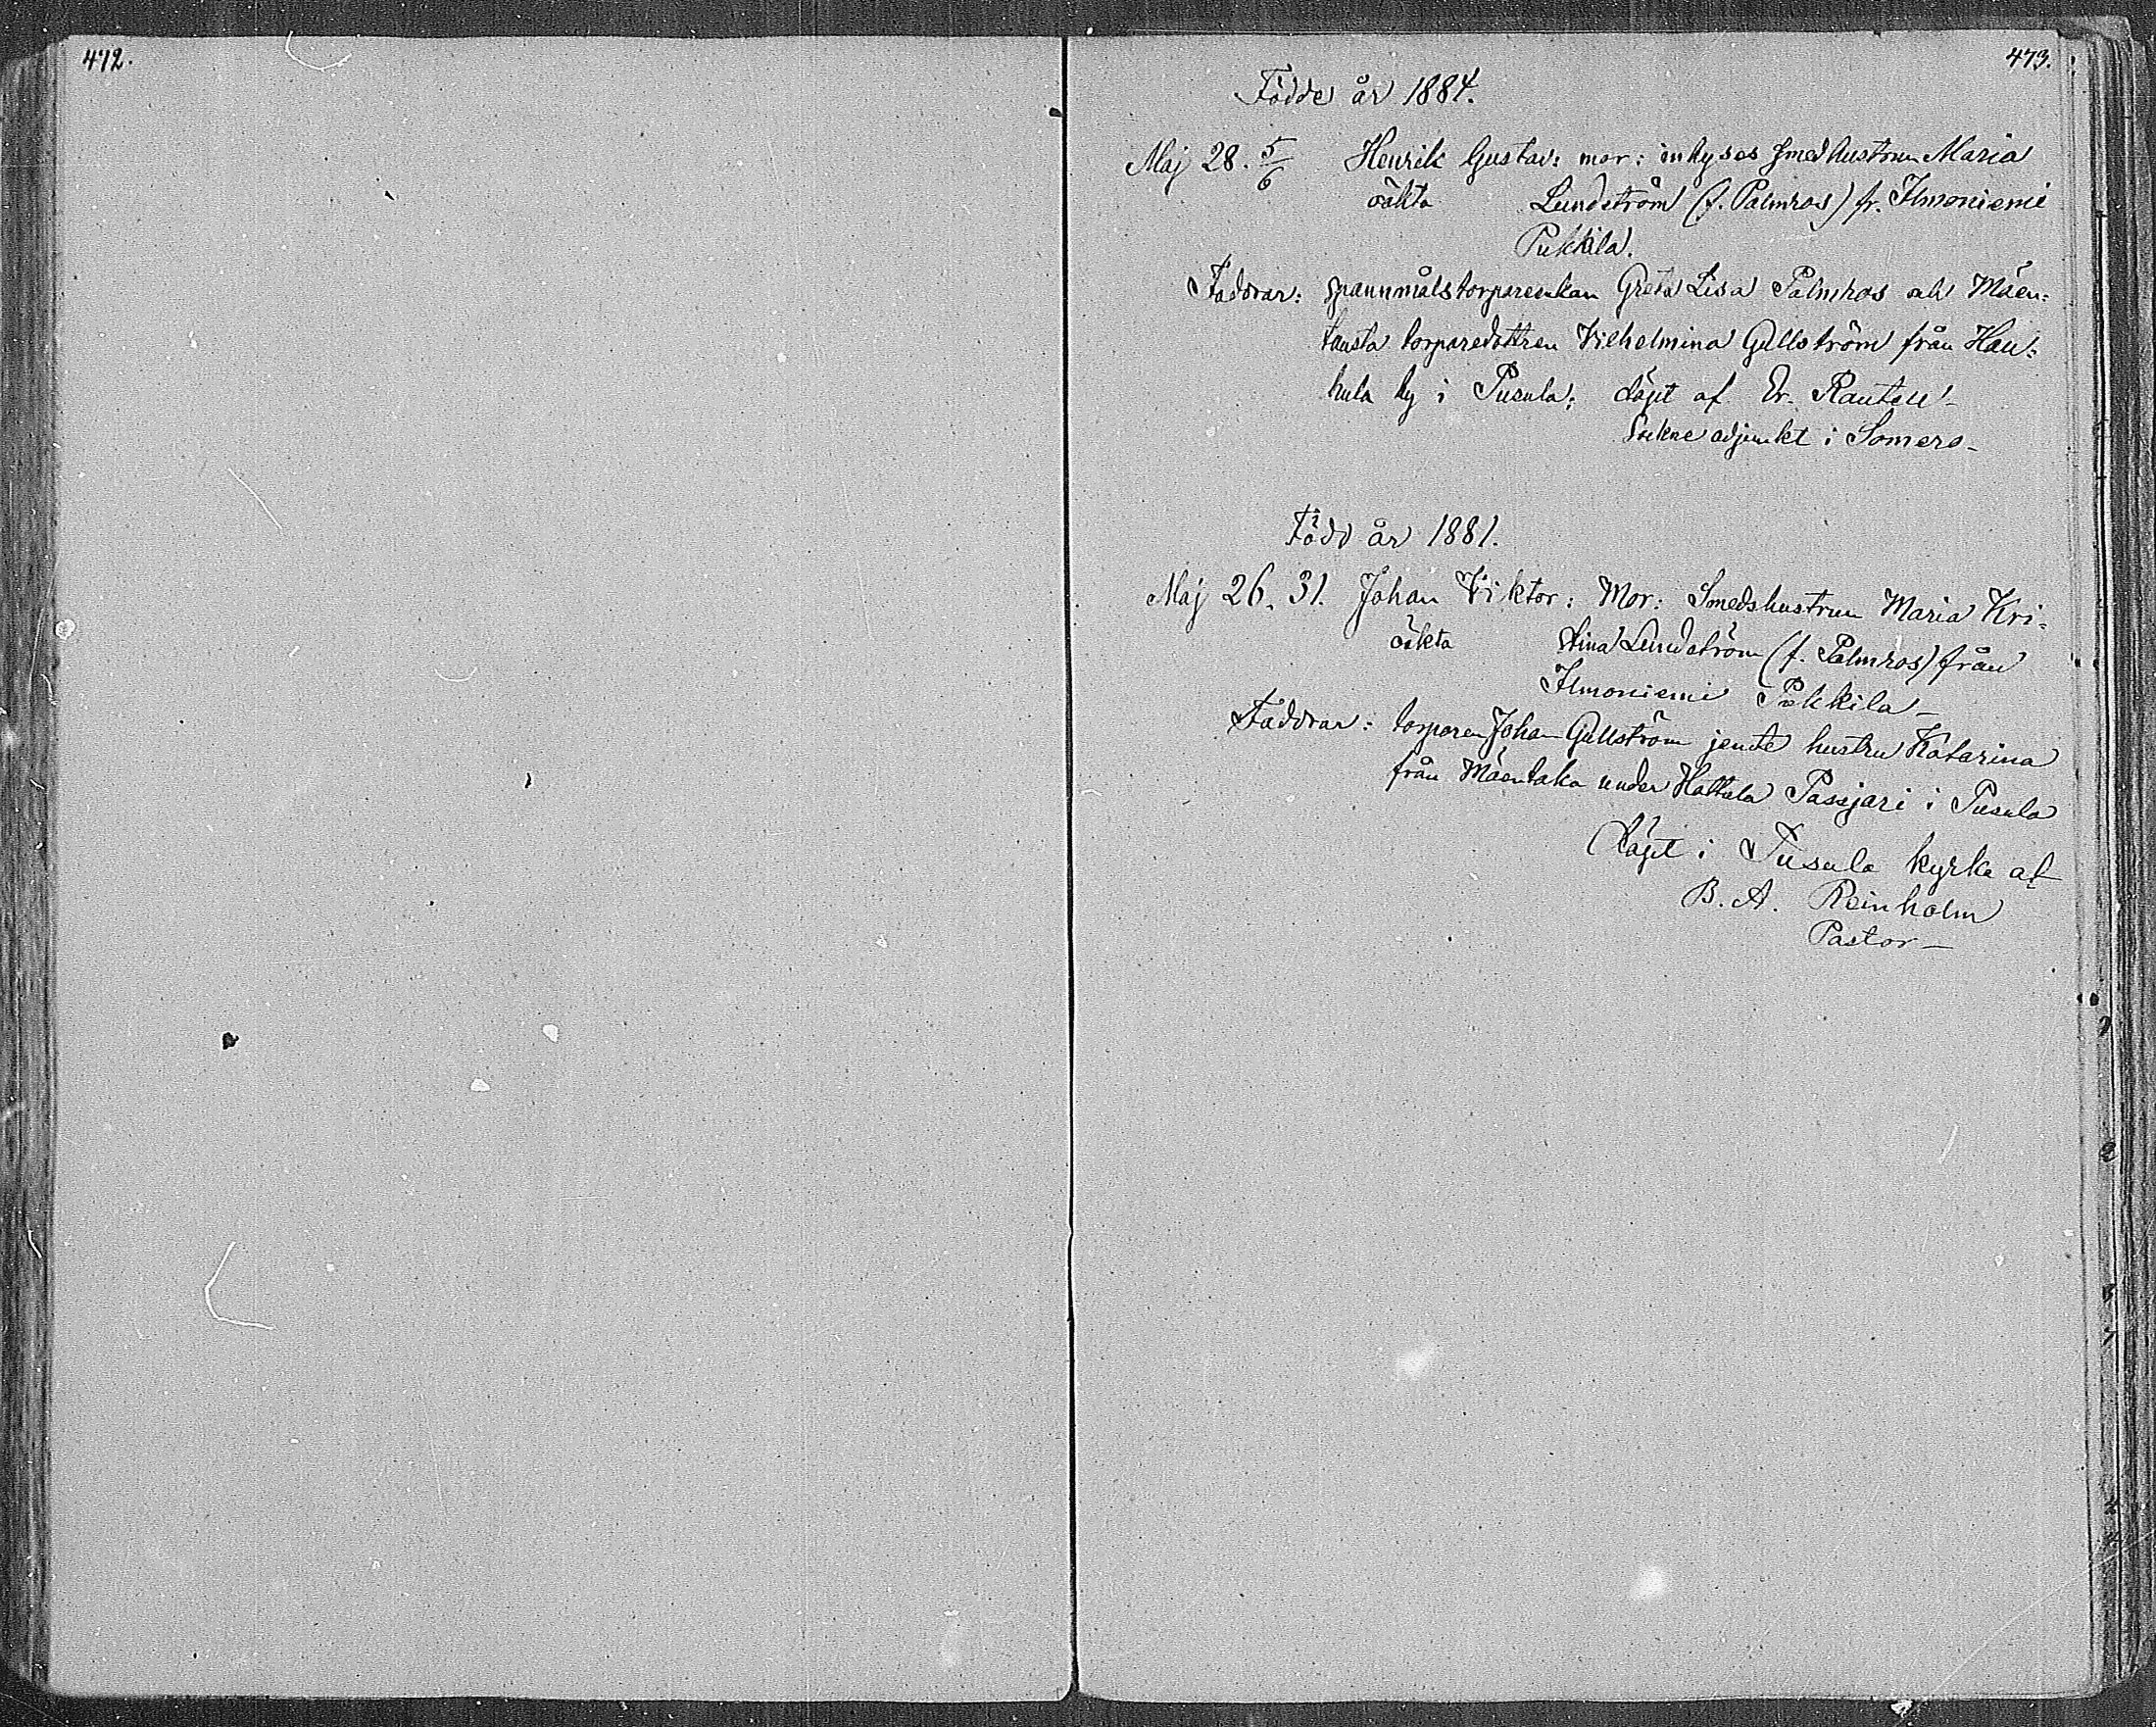 472.
473.
Födde år 1884.
Maj 28. 5/6 Henrik Gustav: mor: inhyses smedhustrun Maria
oäkta Lundström (f. Palmros) fr. Ilmoniemi
Pukkila.
Faddrar: spannmålstorpareenkan Greta Lisa Palmros och Mäen-
tausta torparedottren Vilhelmina Gullström från Hau-
hula by i Pusula; döpt af Vr. Rautell
Sockne adjunkt i Somero
Född år 1881.
Maj 26. 31. Johan Viktor: Mor: Smedshustrun Maria Kri-
oäkta stina Lundström (f. Palmros) från
Ilmoniemi Pukkila
Faddrar: torparen Johan Gullström jemte hustru Katarina
från Mäentaka under Hattula Passjari i Pusula
Döpt i Pusula kyrka af
B. A. Reinholm
Pastor